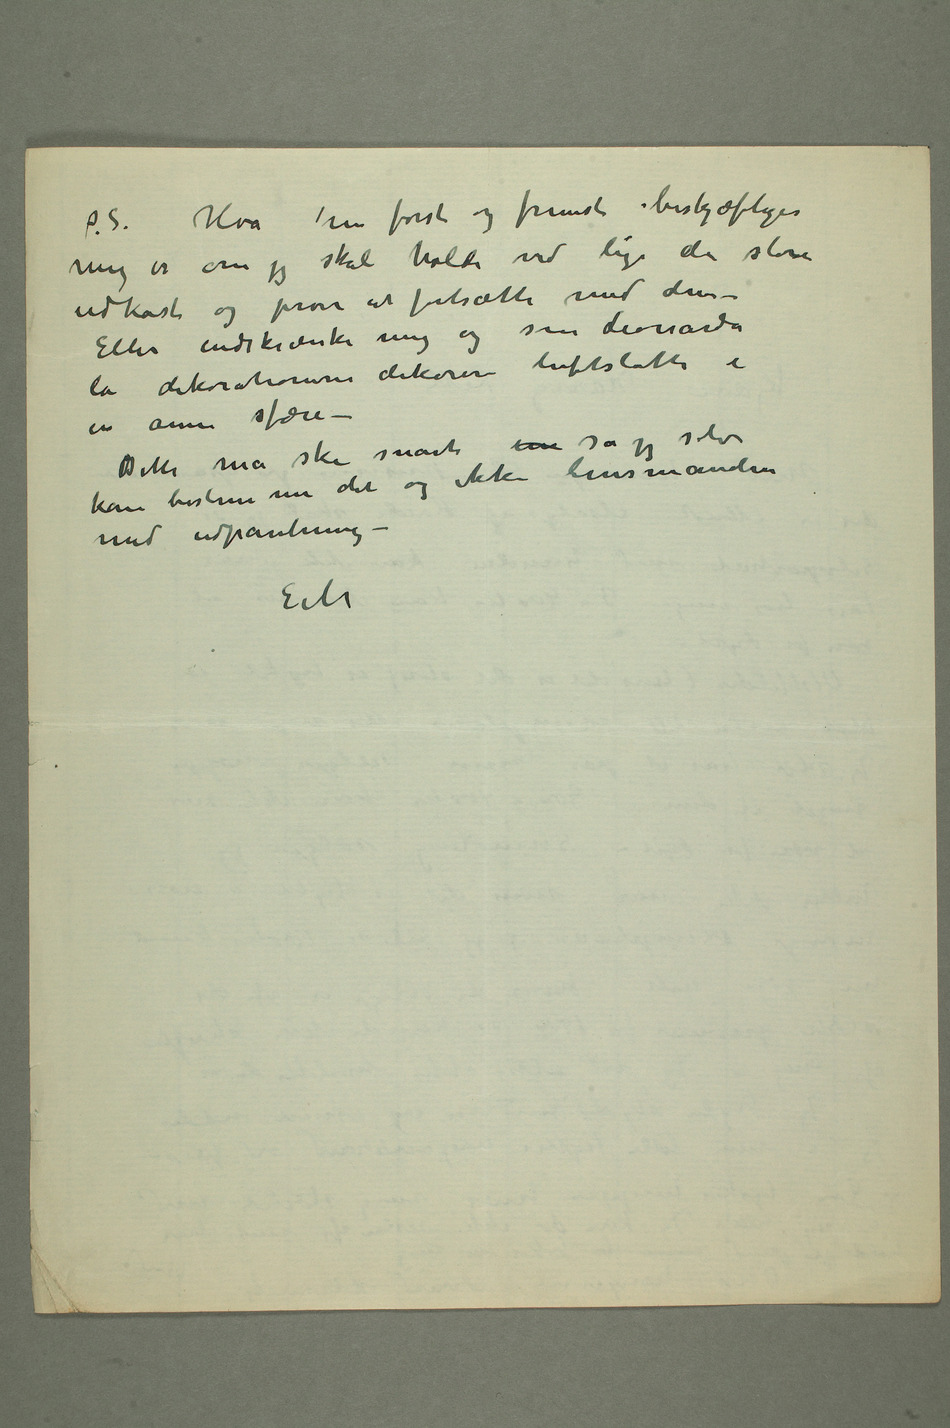 P.S. Hva nu først og fremst beskjæftiger
mig er om jeg skal holde ved lige de store
udkast og prøve at fortsætte med dem –
Eller indskrænke mig og som Leonardo
la dekorationerne dekorere luftslotte i
en annen sfære –
Dette må ske snart så jeg selv
kan bestemme det og ikke lensmanden
med udpantning –
EM